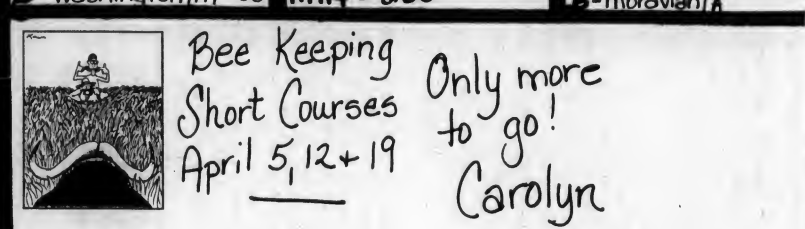 Bee Keeping
Short Courses
April 5, 12 + 19
Only more
to go!
Carolyn